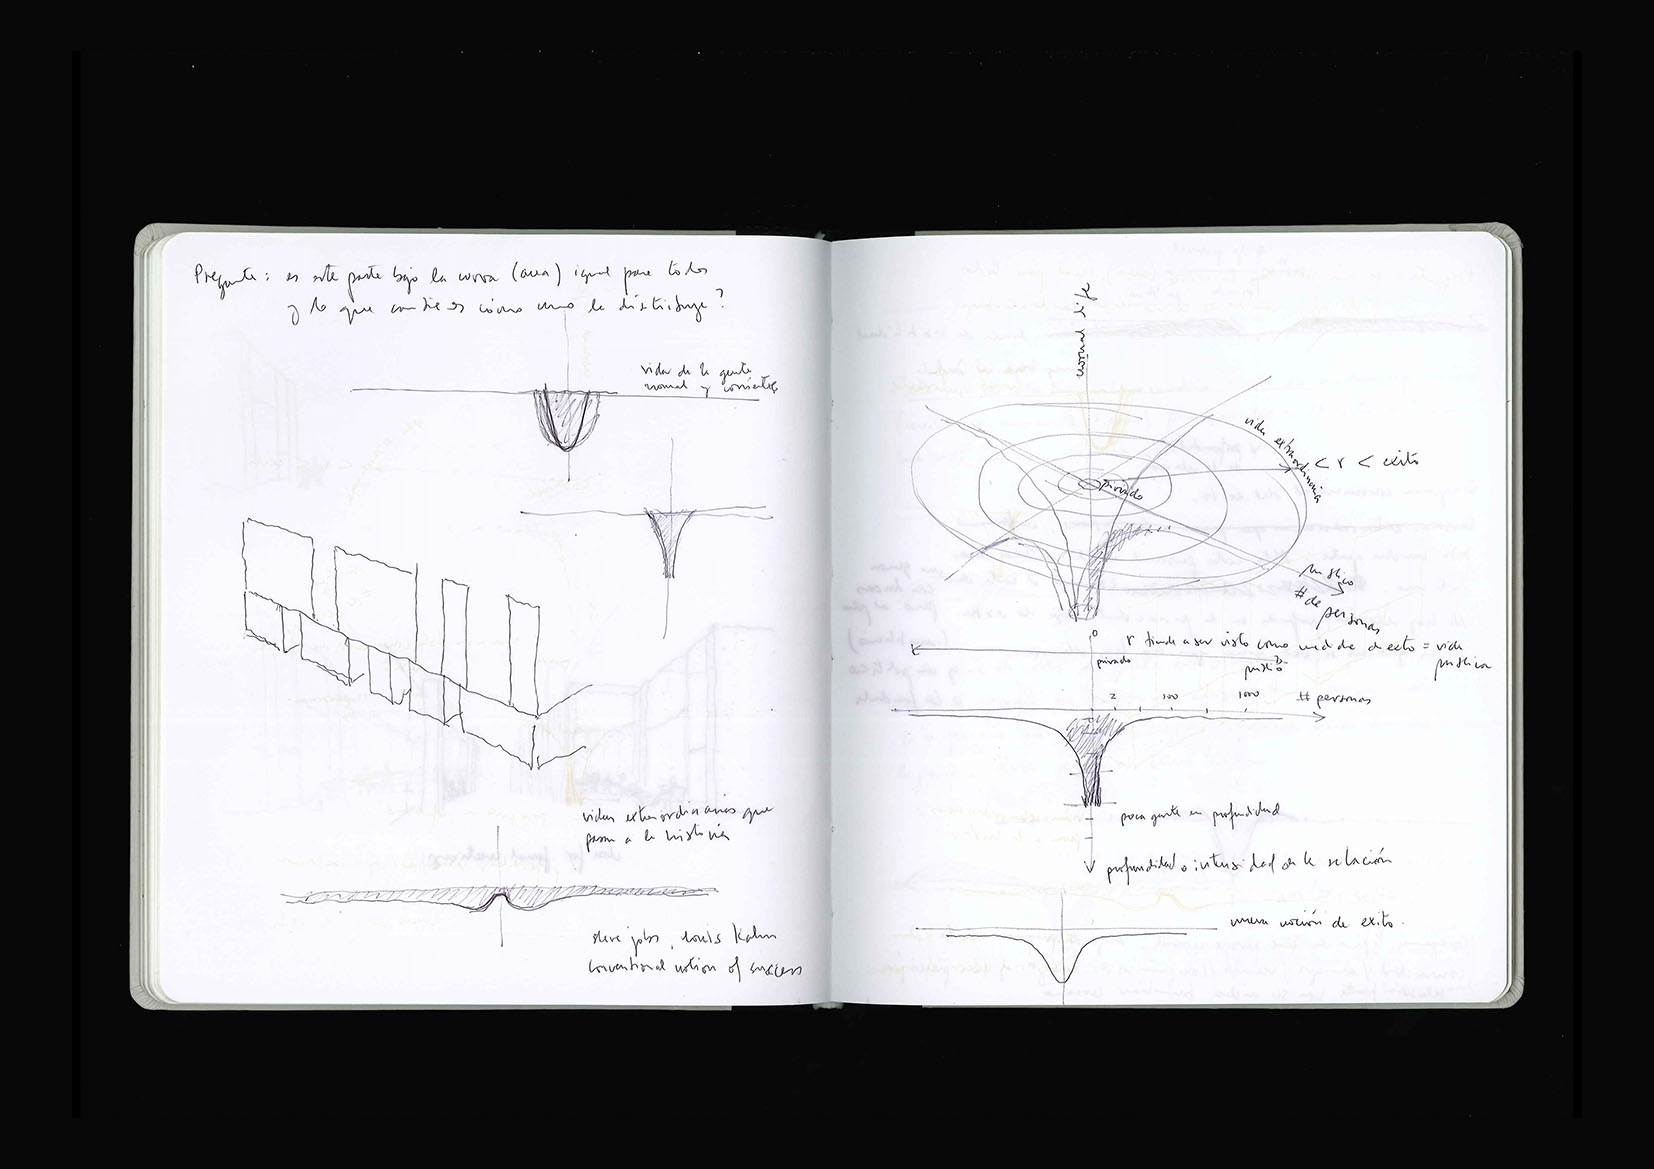 Pregunta: es esta parte bajo la curva (area) igual para todos
y lo que cambia es cómo uno la distribuye?
vida de la gente
normal y corriente
vidas extraordinarias que
pasan a la historia
steve jobs, Louis Kahn
conventional notion of success
normal life
vida extraordinaria
< r < exito
privado
publico
# de personas
0
r tiende a ser visto como medida de exito = vida
publica
privado
publico
2 100 1000 # personas
poca gente en profundidad
profundidad o intensidad de la relación
nueva noción de exito.